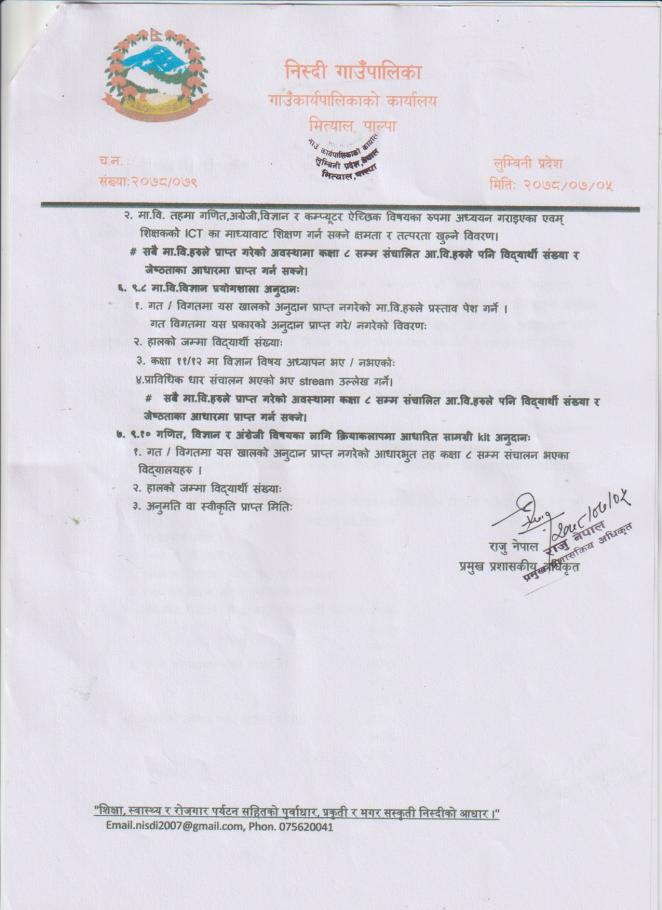 निस्दी गाउँपालिका
गाउँकार्यपालिकाको कार्यालय
मित्याल, पाल्पा
गाउँ कार्यपालिकाको कार्यालय
लुम्बिनी प्रदेश,
मित्याल, पाल्पा
च.न.
संख्याः२०७८/०७९
लुम्बिनी प्रदेश
मितिः २०७८/०७/०५
२. मा.वि. तहमा गणित,अंग्रेजी,विज्ञान र कम्प्यूटर ऐच्छिक विषयका रुपमा अध्ययन गराइएका एवम्
शिक्षकको ICT का माध्यावाट शिक्षण गर्न सक्ने क्षमता र तत्परता खुल्ने विवरण।
# सबै मा.वि.हरुले प्राप्त गरेको अवस्थामा कक्षा ८ सम्म संचालित आ.वि.हरुले पनि विद्यार्थी संख्या र
जेष्ठताका आधारमा प्राप्त गर्न सक्ने।
६. ९.८ मा.वि.विज्ञान प्रयोगशाला अनुदानः
१. गत / विगतमा यस खालको अनुदान प्राप्त नगरेको मा.वि.हरुले प्रस्ताव पेश गर्ने ।
गत विगतमा यस प्रकारको अनुदान प्राप्त गरे/ नगरेको विवरणः
२. हालको जम्मा विद्यार्थी संख्याः
३. कक्षा ११/१२ मा विज्ञान विषय अध्यापन भए / नभएकोः
४.प्राविधिक धार संचालन भएको भए stream उल्लेख गर्ने।
# सबै मा.वि.हरुले प्राप्त गरेको अवस्थामा कक्षा ८ सम्म संचालित आ.वि.हरुले पनि विद्यार्थी संख्या र
जेष्ठताका आधारमा प्राप्त गर्न सक्ने।
७. ९.१० गणित, विज्ञान र अंग्रेजी विषयका लागि क्रियाकलापमा आधारित सामग्री kit अनुदानः
१. गत / विगतमा यस खालको अनुदान प्राप्त नगरेको आधारभुत तह कक्षा ८ सम्म संचालन भएका
विद्यालयहरु ।
२. हालको जम्मा विद्यार्थी संख्याः
३. अनुमति वा स्वीकृति प्राप्त मितिः
२०७८/०७/०५
राजु नेपाल
प्रमुख प्रशासकीय अधिकृत
राजु नेपाल
प्रमुख प्रशासकिय अधिकृत
"शिक्षा, स्वास्थ्य र रोजगार पर्यटन सहितको पुर्वाधार, प्रकृती र मगर सस्कृती निस्दीको आधार ।"
Email.nisdi2007@gmail.com, Phon. 075620041